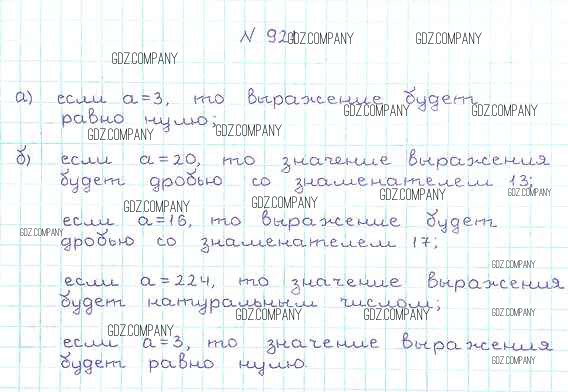 N 921 GDZ.COMPANY GDZ.COMPANY
GDZ.COMPANY
а) если а=3, то выражение будет
GDZ.COMPANY GDZ.COMPANY
равно нулю;
GDZ.COMPANY GDZ.COMPANY
б) если а=20, то значение выражения
будет дробью со знаменателем 13;
GDZ.COMPANY GDZ.COMPANY GDZ.COMPANY GDZ.COMPANY
если а=16, то выражение будет
GDZ.COMPANY
дробью со знаменателем 17;
GDZ.COMPANY
если а=224, то значение выражения
будет натуральным числом;
GDZ.COMPANY GDZ.COMPANY GDZ.COMPANY
GDZ.COMPANY
если а=3, то значение выражения
будет равно нулю
GDZ.COMPANY